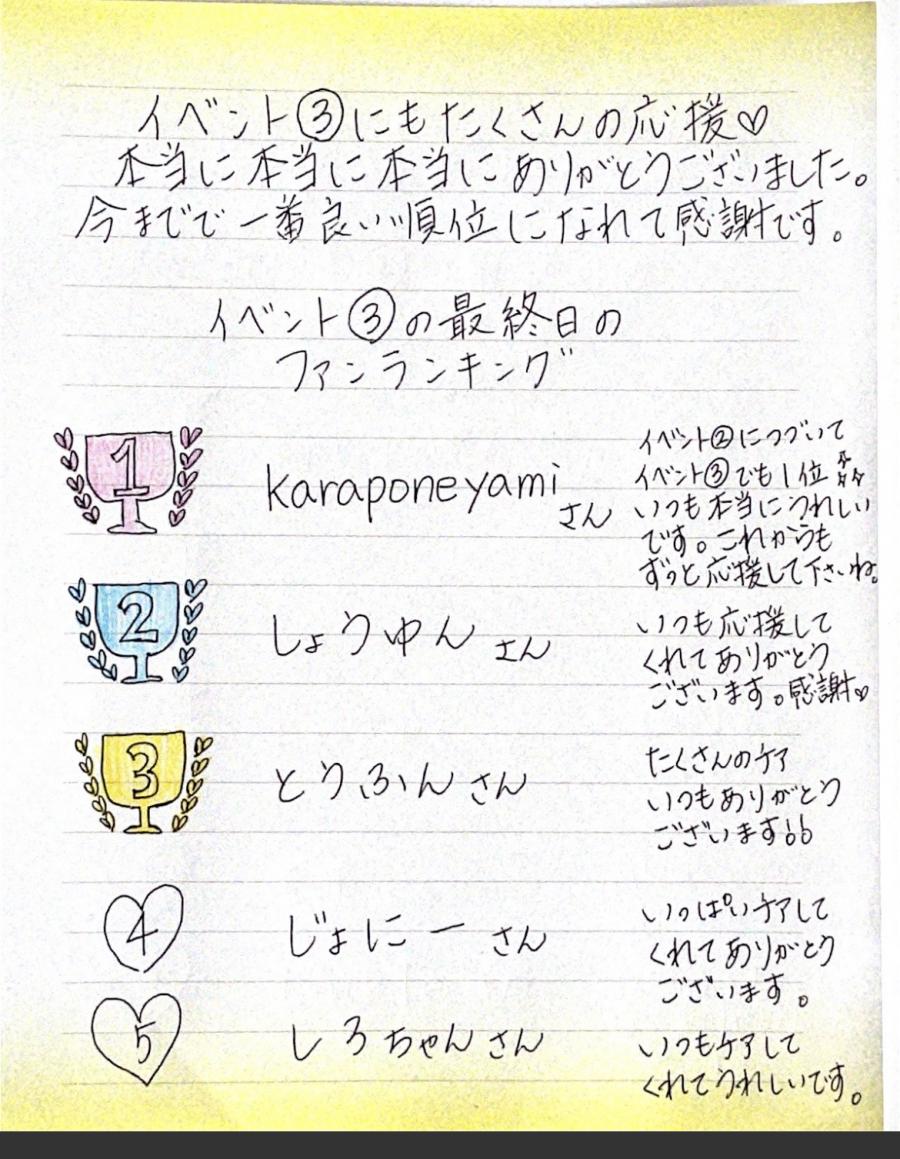 イベント③にもたくさんの応援♡
本当に本当に本当にありがとうございました。
今までで一番良い順位になれて感謝です。
イベント③の最終日の
ファンランキング
1
karaponeyami
さん
イベント②につづいて
イベント③でも1位
いつも本当にうれしい
です。これからも
ずっと応援して下さいね。
2
しょうゆん さん
いつも応援して
くれてありがとう
ございます。感謝♡
3
とりふん さん
たくさんのケア
いつもありがとう
ございます!!
4
じょにー さん
いっぱいケアして
くれてありがとう
ございます。
5
しろちゃん さん
いつもケアして
くれてうれしいです。